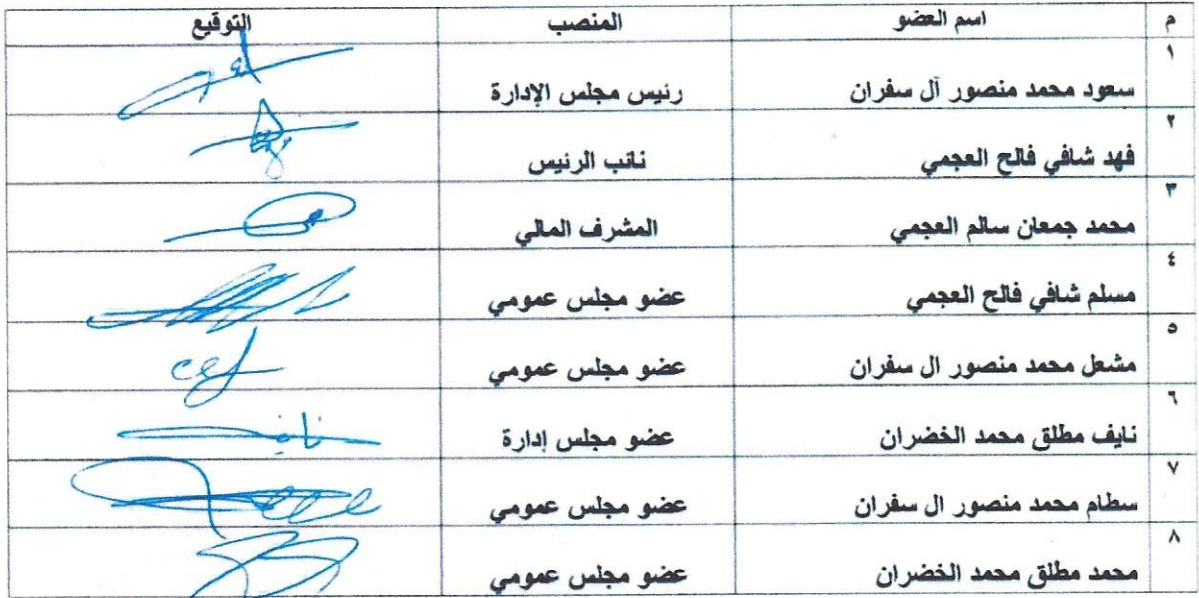 م اسم العضو المنصب التوقيع
١ سعود محمد منصور آل سفران رئيس مجلس الإدارة
٢ فهد شافي فالح العجمي نائب الرئيس
٣ محمد جمعان سالم العجمي المشرف المالي
٤ مسلم شافي فالح العجمي عضو مجلس عمومي
٥ مشعل محمد منصور ال سفران عضو مجلس عمومي
٦ نايف مطلق محمد الخضران عضو مجلس إدارة نايف
٧ سطام محمد منصور ال سفران عضو مجلس عمومي
٨ محمد مطلق محمد الخضران عضو مجلس عمومي